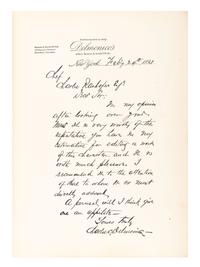 Delmonico's
New York Feby 24th
Charles Ranhofer Esq
Dear Sir.
In my opinion
after looking over your
it is very worthy of the
reputation you have in my
estimation for editing a work
of this character, and it is
with much pleasure I
recommend it to the attention
of those to whom it is most
directly
A perusal will I think give
one an appetite
Yours truly
Charles C Delmonico